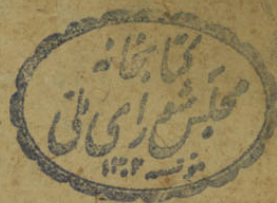 کتابخانه
مجلس شورای ملی
موسسه ۱۳۰۲